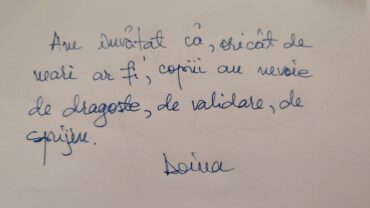 Am învățat că, oricât de
mari ar fi, copiii au nevoie
de dragoste, de validare, de
sprijin.
Doina